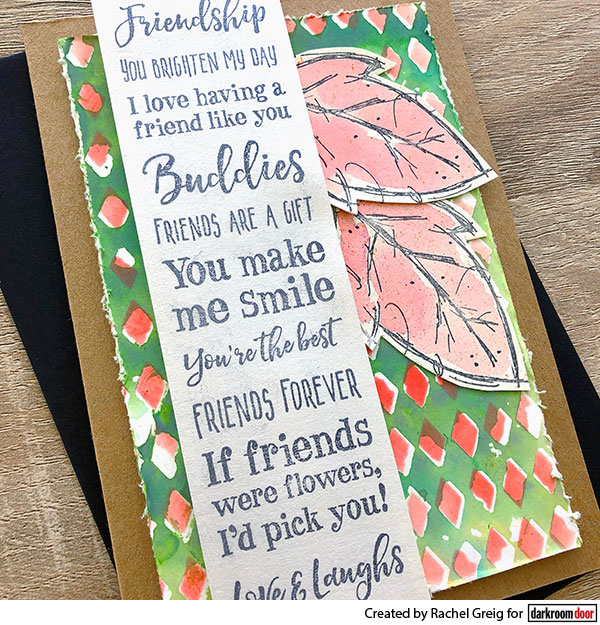 Friendship
YOU BRIGHTEN MY DAY
I love having a
friend like you
Buddies
FRIENDS ARE A GIFT
You make
me smile
You're the best
FRIENDS FOREVER
If friends
were flowers,
I'd pick you!
Love & Laughs
Created by Rachel Greig for darkroomdoor